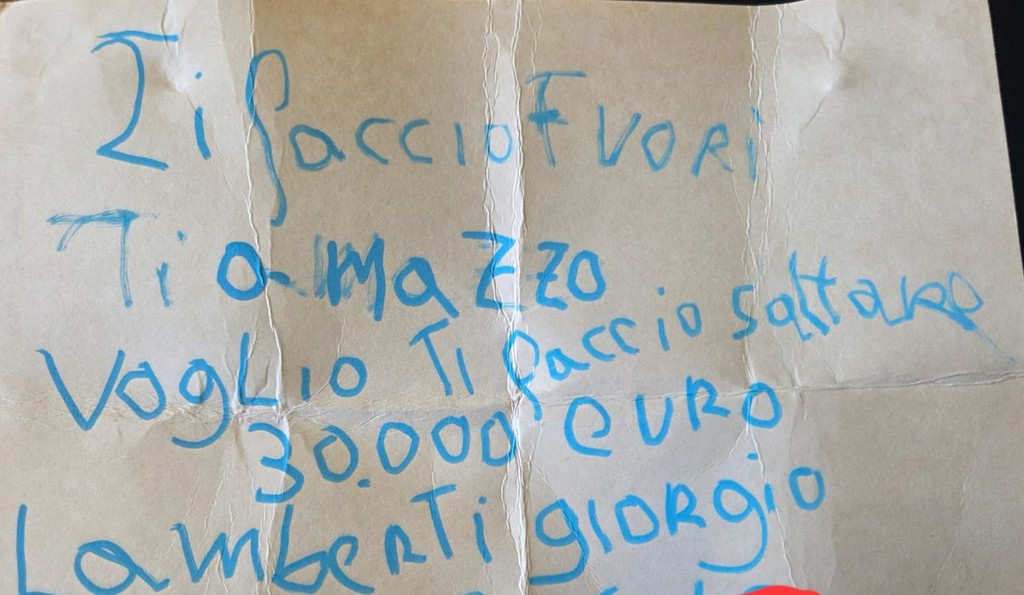 Ti faccio FUORi
Ti amazzo
VogLio Ti faccio saltare
30.000 euro
LambeRTi giorgio